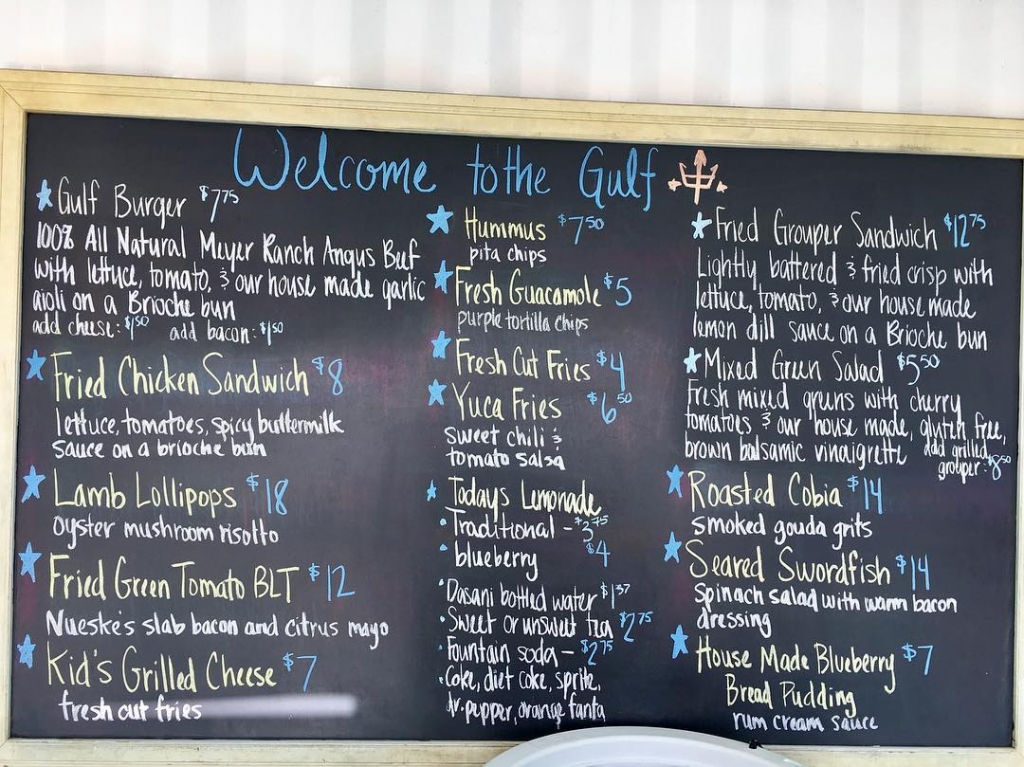 Welcome to the Gulf
Gulf Burger $7.75
100% All Natural Meyer Ranch Angus Beef
with lettuce, tomato, & our house made garlic
aioli on a Brioche bun
add cheese: $1.50 add bacon: $1.50
Fried Chicken Sandwich $8
lettuce, tomatoes, spicy buttermilk
sauce on a brioche bun
Lamb Lollipops $18
oyster mushroom risotto
Fried Green Tomato BLT $12
Nueske's slab bacon and citrus mayo
Kid's Grilled Cheese $7
fresh cut fries
Hummus $7.50
pita chips
Fresh Guacamole $5
purple tortilla chips
Fresh Cut Fries $4
Yuca Fries $6.50
sweet chili &
tomato salsa
Todays Lemonade
Traditional - $3.75
blueberry $4
Dasani bottled water $1.37
Sweet or unsweet tea $2.75
Fountain soda - $2.75
Coke, diet coke, sprite,
dr. pepper, orange fanta
Fried Grouper Sandwich $12.75
Lightly battered & fried crisp with
lettuce, tomato, & our house made
lemon dill sauce on a Brioche bun
Mixed Green Salad $5.50
Fresh mixed greens with cherry
tomatoes & our house made, gluten free,
brown balsamic vinaigrette add grilled
grouper: $8.50
Roasted Cobia $14
smoked gouda grits
Seared Swordfish $14
Spinach salad with warm bacon
dressing
House Made Blueberry $7
Bread Pudding
rum cream sauce